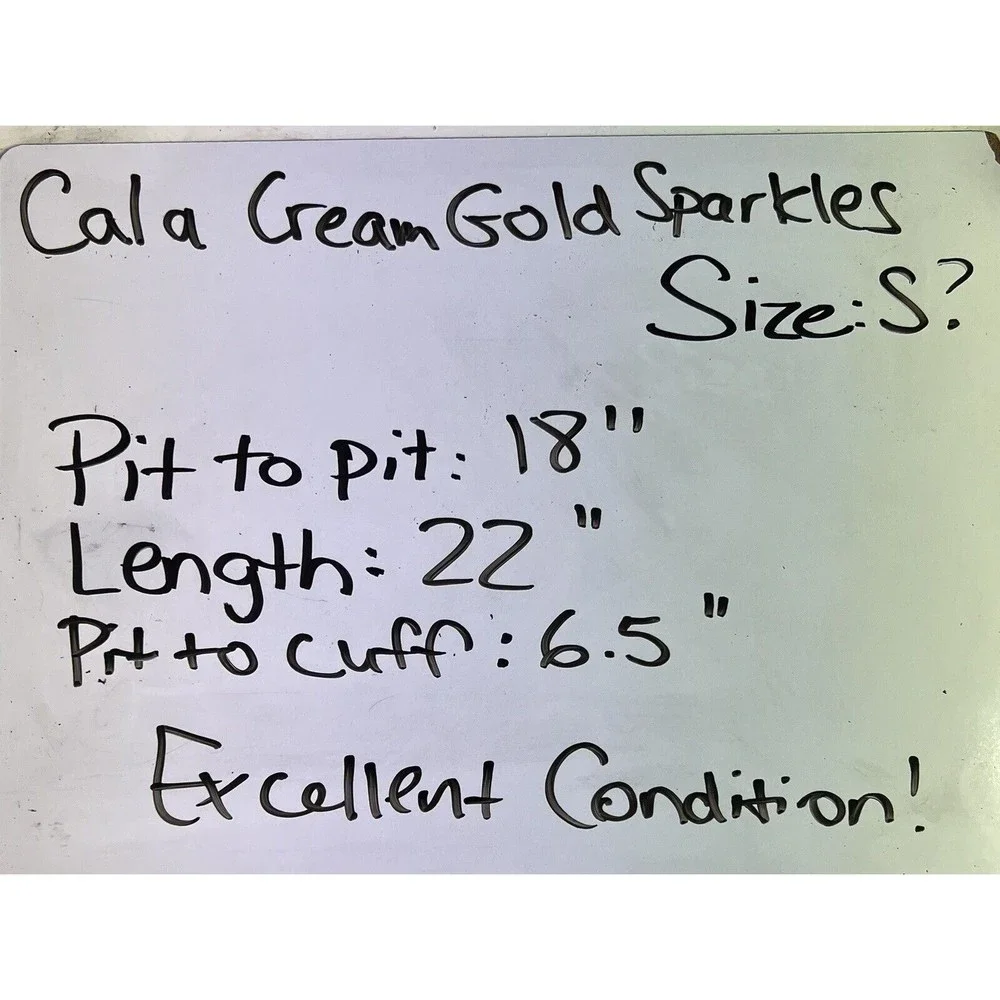 Cala Cream Gold Sparkles
Size: S?
Pit to pit: 18"
Length: 22"
Pit to cuff: 6.5"
Excellent Condition!